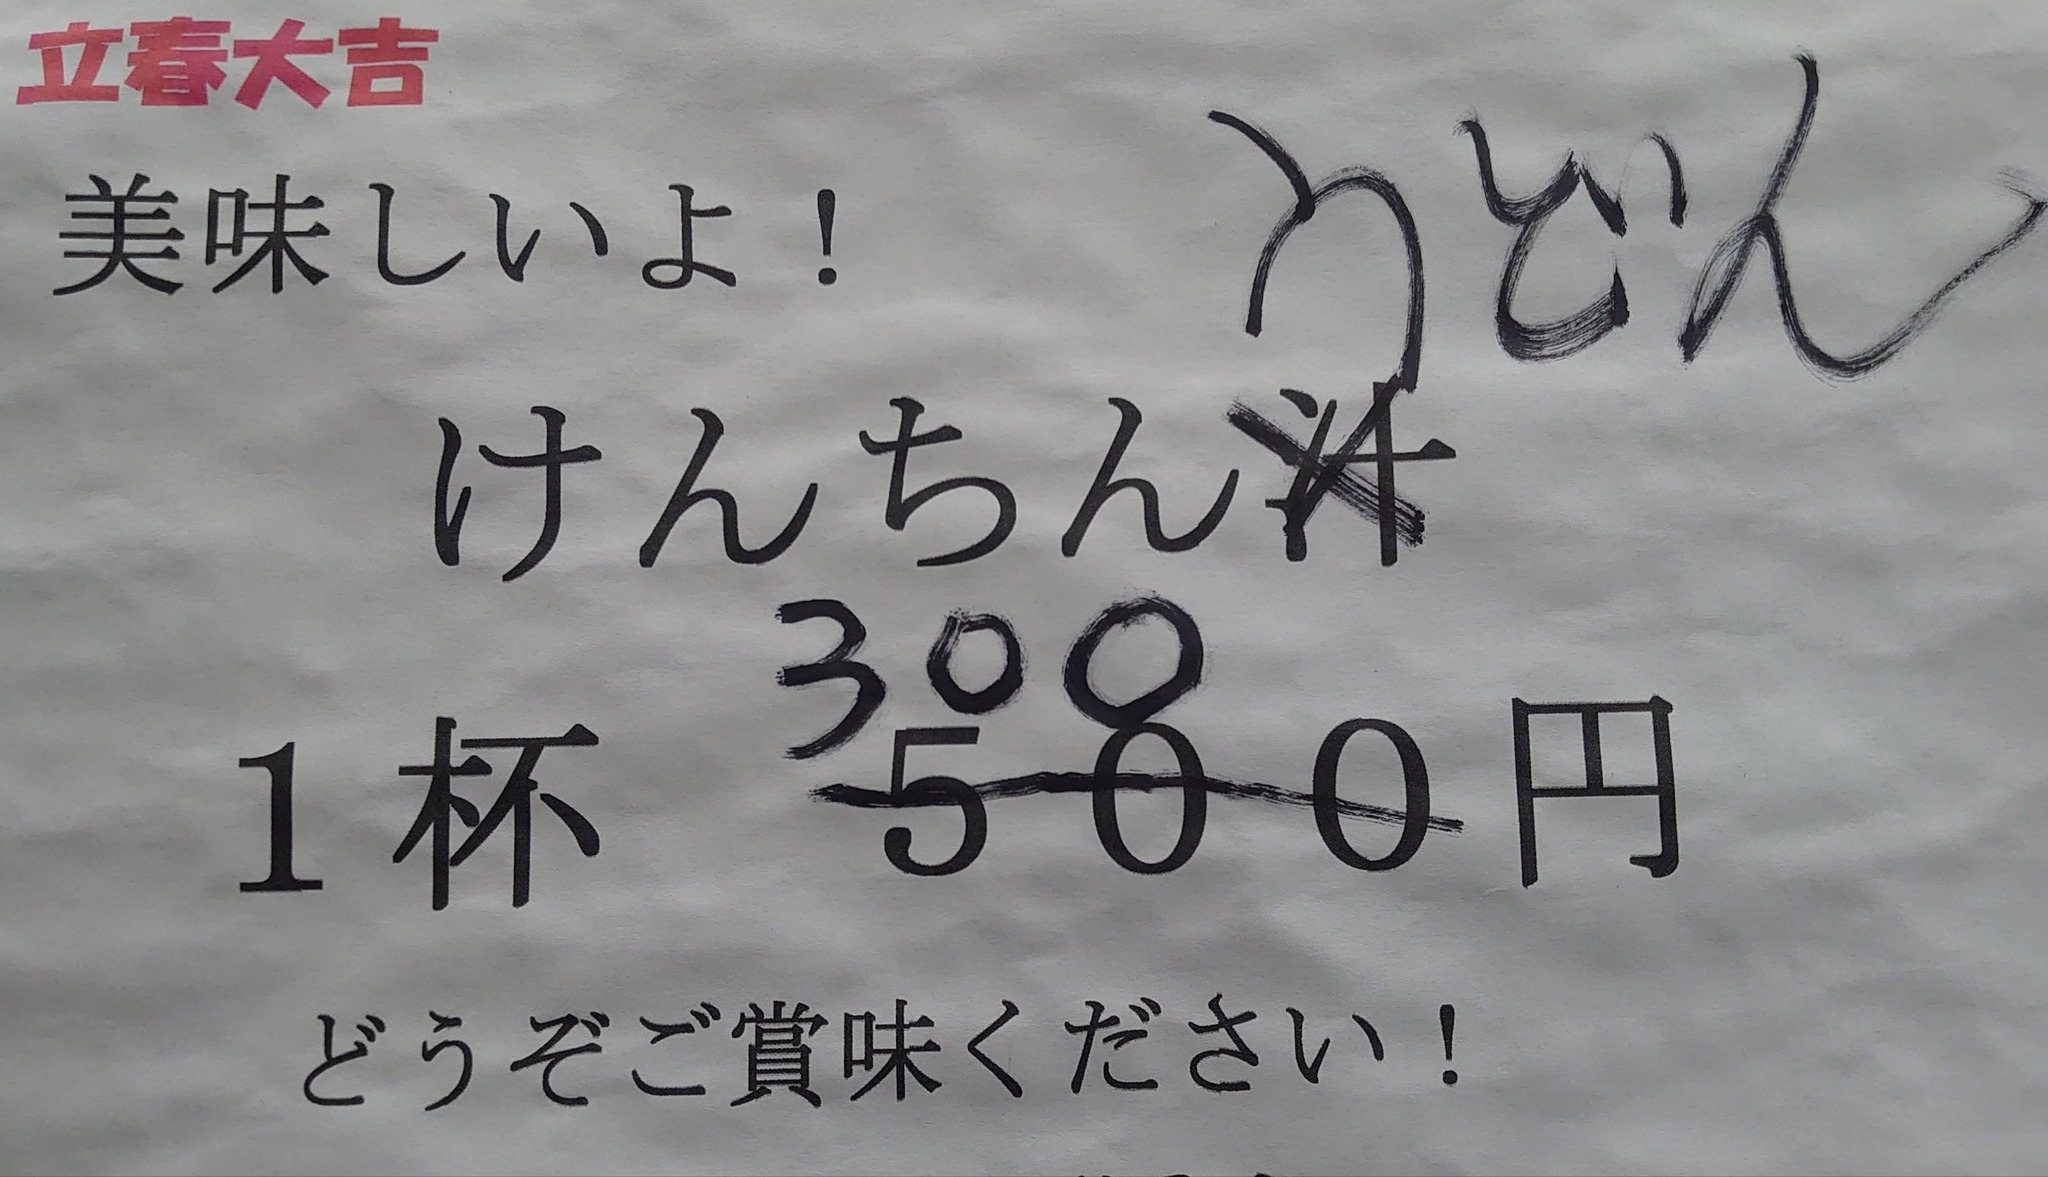 立春大吉
美味しいよ！
うどん
けんちん汁
300
1杯 500円
どうぞご賞味ください！